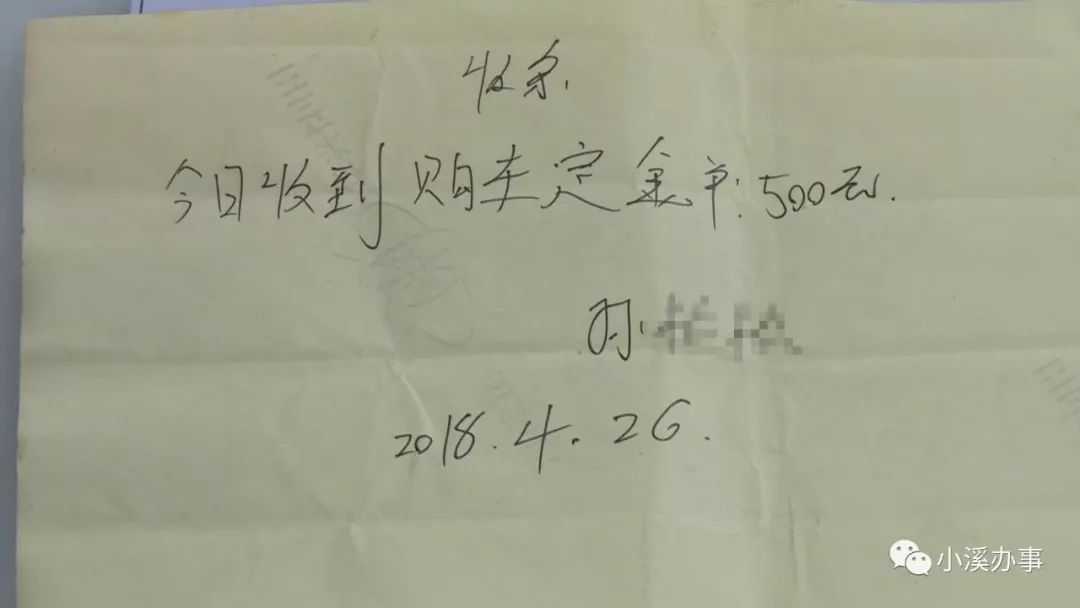 收条.
今日收到购车定金单:500元.
孙
2018.4.26.
小溪办事